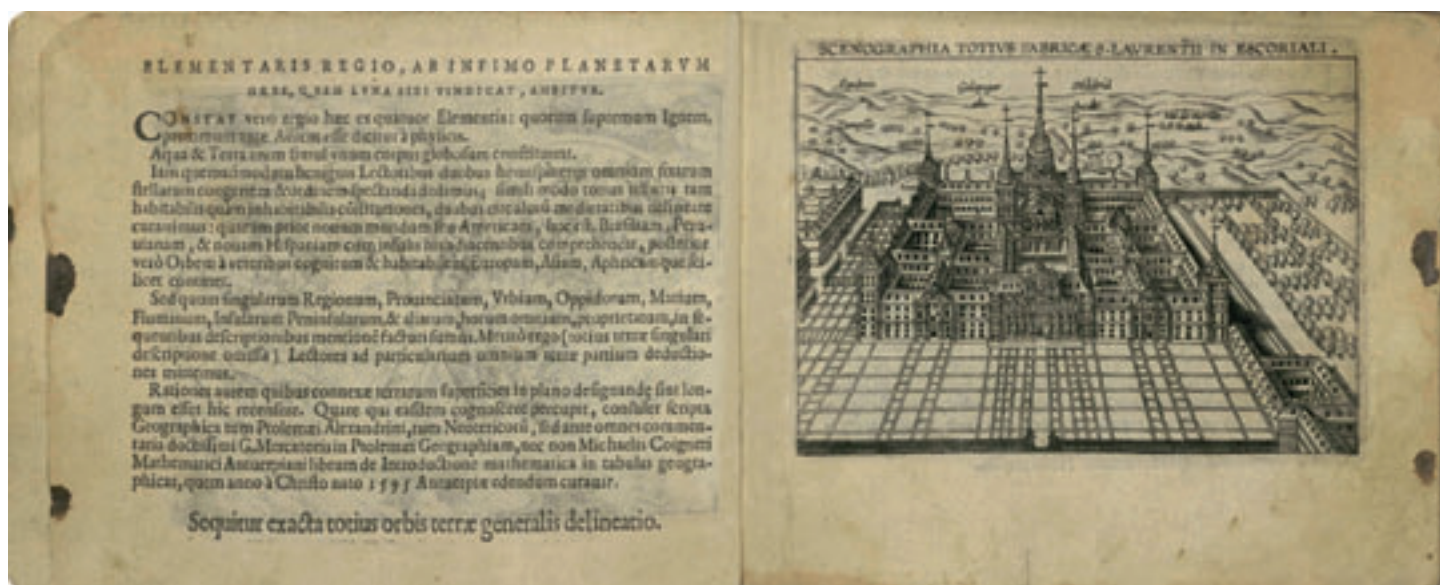 ELEMENTARIS REGIO, AB INFIMO PLANETARVM
ORBE, QVEM LVNA SIBI VINDICAT, AMBITVR.
CONSTAT vero regio hæc ex quatuor Elementis: quorum supremum Ignem,
Aërem esse dicitur à physicis.
Aqua & Terra enim simul vnum corpus globosum constituunt.
Iam quemadmodum benignis Lectoribus duobus hemispheriis omnium fixarum
stellarum spectandi dedimus; simili modo totius telluris tam
habitabilis quàm inhabitabilis duobus circulis delineare
curauimus: quarum prior nouum mundum siue Americam, hoc est, Brasiliam, Peru-
uianam, & nouam Hispaniam cum insulis comprehendit, posterior
verò Orbem à veteribus cognitum & habitabilem, Europam, Asiam, Aphricamque sci-
licet continet.
Sed quum singularum Regionum, Prouinciarum, Vrbium, Oppidorum, Marium,
Fluminum, Insularum Peninsularum, & horum omnium, proprietatum, in se-
quentibus descriptionibus mentionē facturi sumus. Meritò ergo (totius terræ singulari
descriptione omissa) Lectores ad particularium omnium terræ partium deductio-
nes mittimus.
Rationes autem quibus connexæ terrarum superficies in plano designandę sint lon-
gum esset hic recensere. Quare qui easdem cognoscere percupit, consulet scripta
Geographica tum Ptolemæi Alexandrini, tum Neotericorū, sed ante omnes commen-
taria doctissimi G. Mercatoris in Ptolemæi Geographiam, nec non Michaelis Coigneti
Mathematici Antuerpiani librum de Introductione mathematica in tabulas geogra-
phicas, quem anno à Christo nato 1595 Antuerpiæ edendum curauit.
Sequitur exacta totius orbis terræ generalis delineatio.
SCENOGRAPHIA TOTIVS FABRICÆ S. LAVRENTII IN ESCORIALI.
Galapagar
Madrid